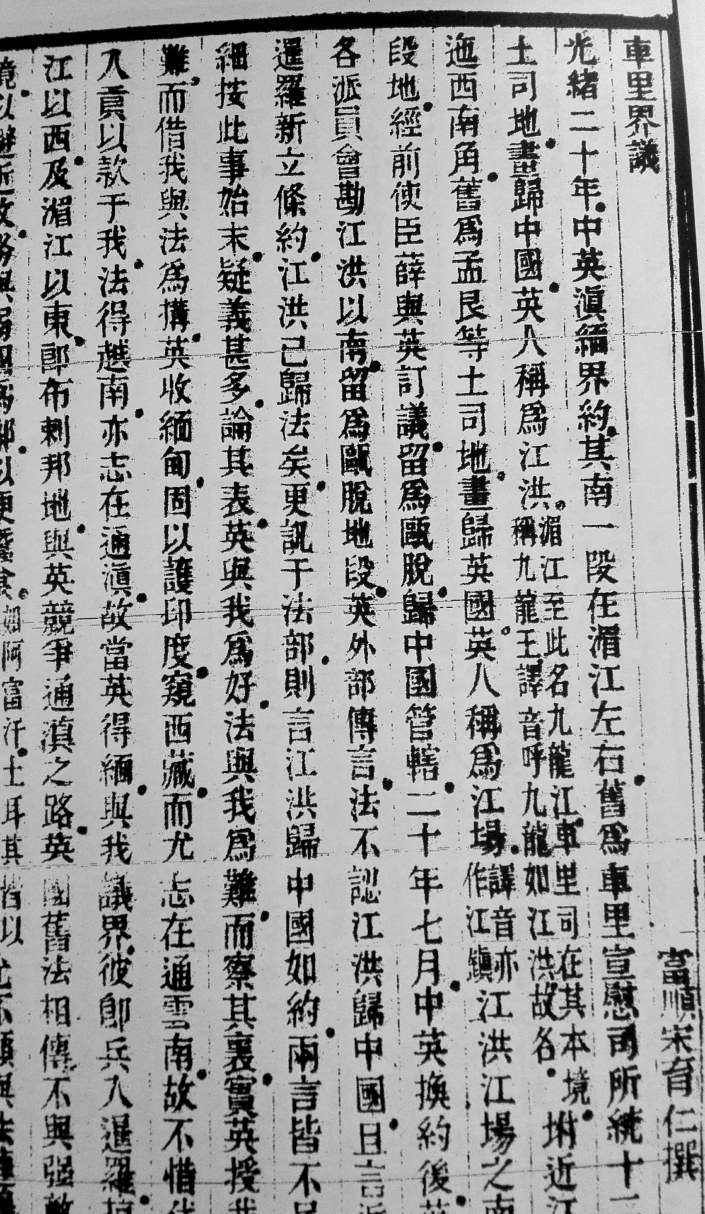 車里界議
富順宋育仁撰
光緒二十年中英滇緬界約其南一段在湄江左右舊為車里宣慰司所統十二
土司地畫歸中國英人稱為江洪湄江至此名九龍江車里司在其本境稱九龍王譯音呼九龍如江洪故名坿近江
迤西南角舊為孟艮等土司地畫歸英國英人稱為江場譯音亦作江鎮江洪江場之南
段地經前使臣薛與英訂議留為甌脫歸中國管轄二十年七月中英換約後英
各派員會勘江洪以南留為甌脫地段英外部傳言法不認江洪歸中國且言
暹羅新立條約江洪已歸法矣更訊于法部則言江洪歸中國如約兩言皆不
細按此事始末疑義甚多論其表英與我為好法與我為難而察其裏實英授我
難而借我與法為搆英收緬甸固以護印度窺西藏而尤志在通雲南故不惜
入貢以款于我法得越南亦志在通滇故當英得緬與我議界彼即兵入暹羅
江以西及湄江以東郎布剌邦地與英競爭通滇之路英國舊法相傳不與强敵
境以避近攻務與弱國為鄰以便蠶食如阿富汗土耳其皆以